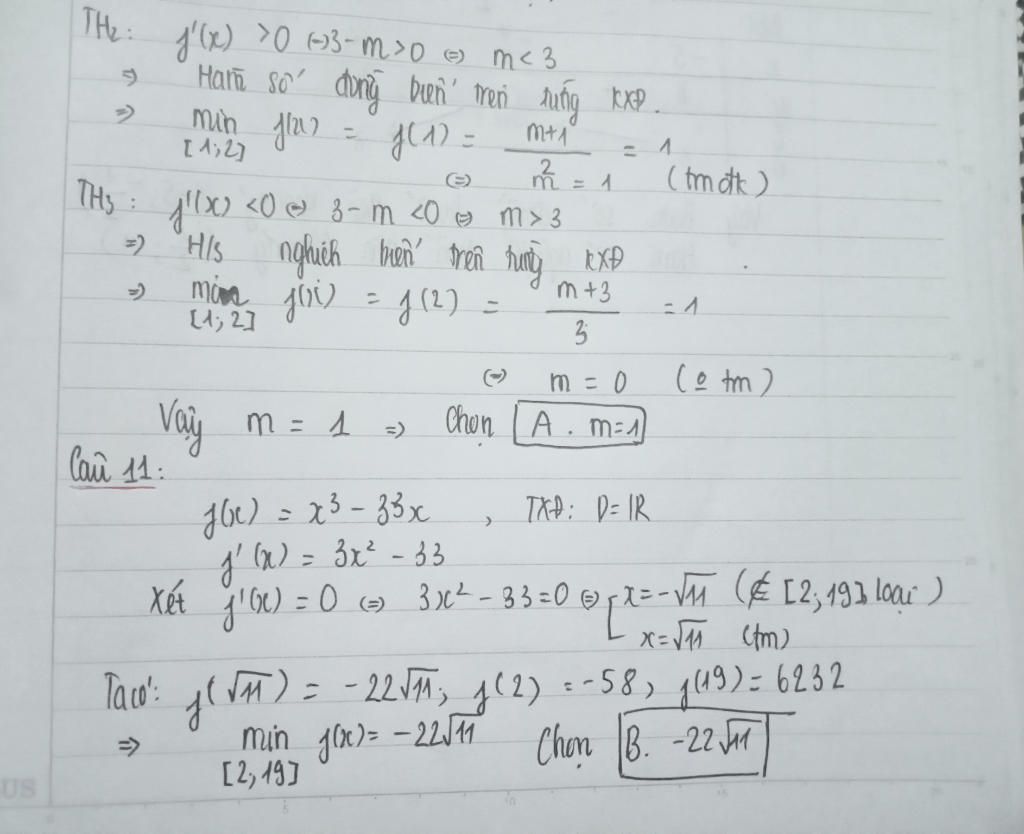 TH2: f'(x) > 0 ⇔ 3 - m > 0 ⇔ m < 3
⇒ Hàm số đồng biến trên từng KXĐ.
⇒ min f(x) = f(1) = (m+1)/2 = 1
[1;2]
⇔ m = 1 (tmđk)
TH3: f'(x) < 0 ⇔ 3 - m < 0 ⇔ m > 3
⇒ H/s nghịch biến trên từng KXĐ.
⇒ min f(x) = f(2) = (m+3)/3 = 1
[1;2]
⇔ m = 0 (o tm)
Vậy m = 1 ⇒ Chọn A. m=1
Câu 11:
f(x) = x³ - 33x , TXĐ: D=ℝ
f'(x) = 3x² - 33
Xét f'(x) = 0 ⇔ 3x² - 33 = 0 ⇔ [ x = -√11 (∉ [2;19] loại)
x = √11 (tm)
Ta có: f(√11) = -22√11; f(2) = -58, f(19) = 6232
⇒ min f(x) = -22√11 Chọn B. -22√11
[2;19]
US